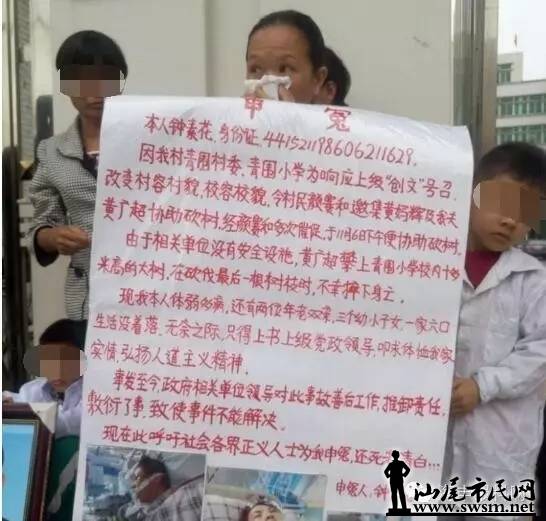 申冤
本人钟素花,身份证,441521198606211629.
因我村青围村委、青围小学为响应上级“创文”号召,
改变村容村貌,校容校貌,令村民颜赛和邀集黄妈辉及我夫
黄广超协助砍树,经颜赛和多次催促,于11月6日下午便协助砍树.
由于相关单位没有安全设施,黄广超攀上青围小学校内十多
米高的大树,在砍伐最后一根树枝时,不幸摔下身亡.
现我本人体弱多病,还有两位年老双亲,三个幼小子女,一家六口
生活没着落.无奈之际,只得上书上级党政领导,叩求体恤我家
实情,弘扬人道主义精神.
事发至今,政府相关单位领导对此事故善后工作,推卸责任,
敷衍了事,致使事件不能解决.
现在此呼吁社会各界正义人士为我申冤,还死者清白...
申冤人,钟
汕尾市民网
www.swsm.net